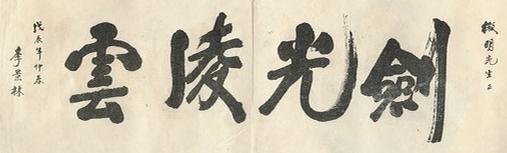 劍光凌雲
明先生正
戊辰年仲春
李景林